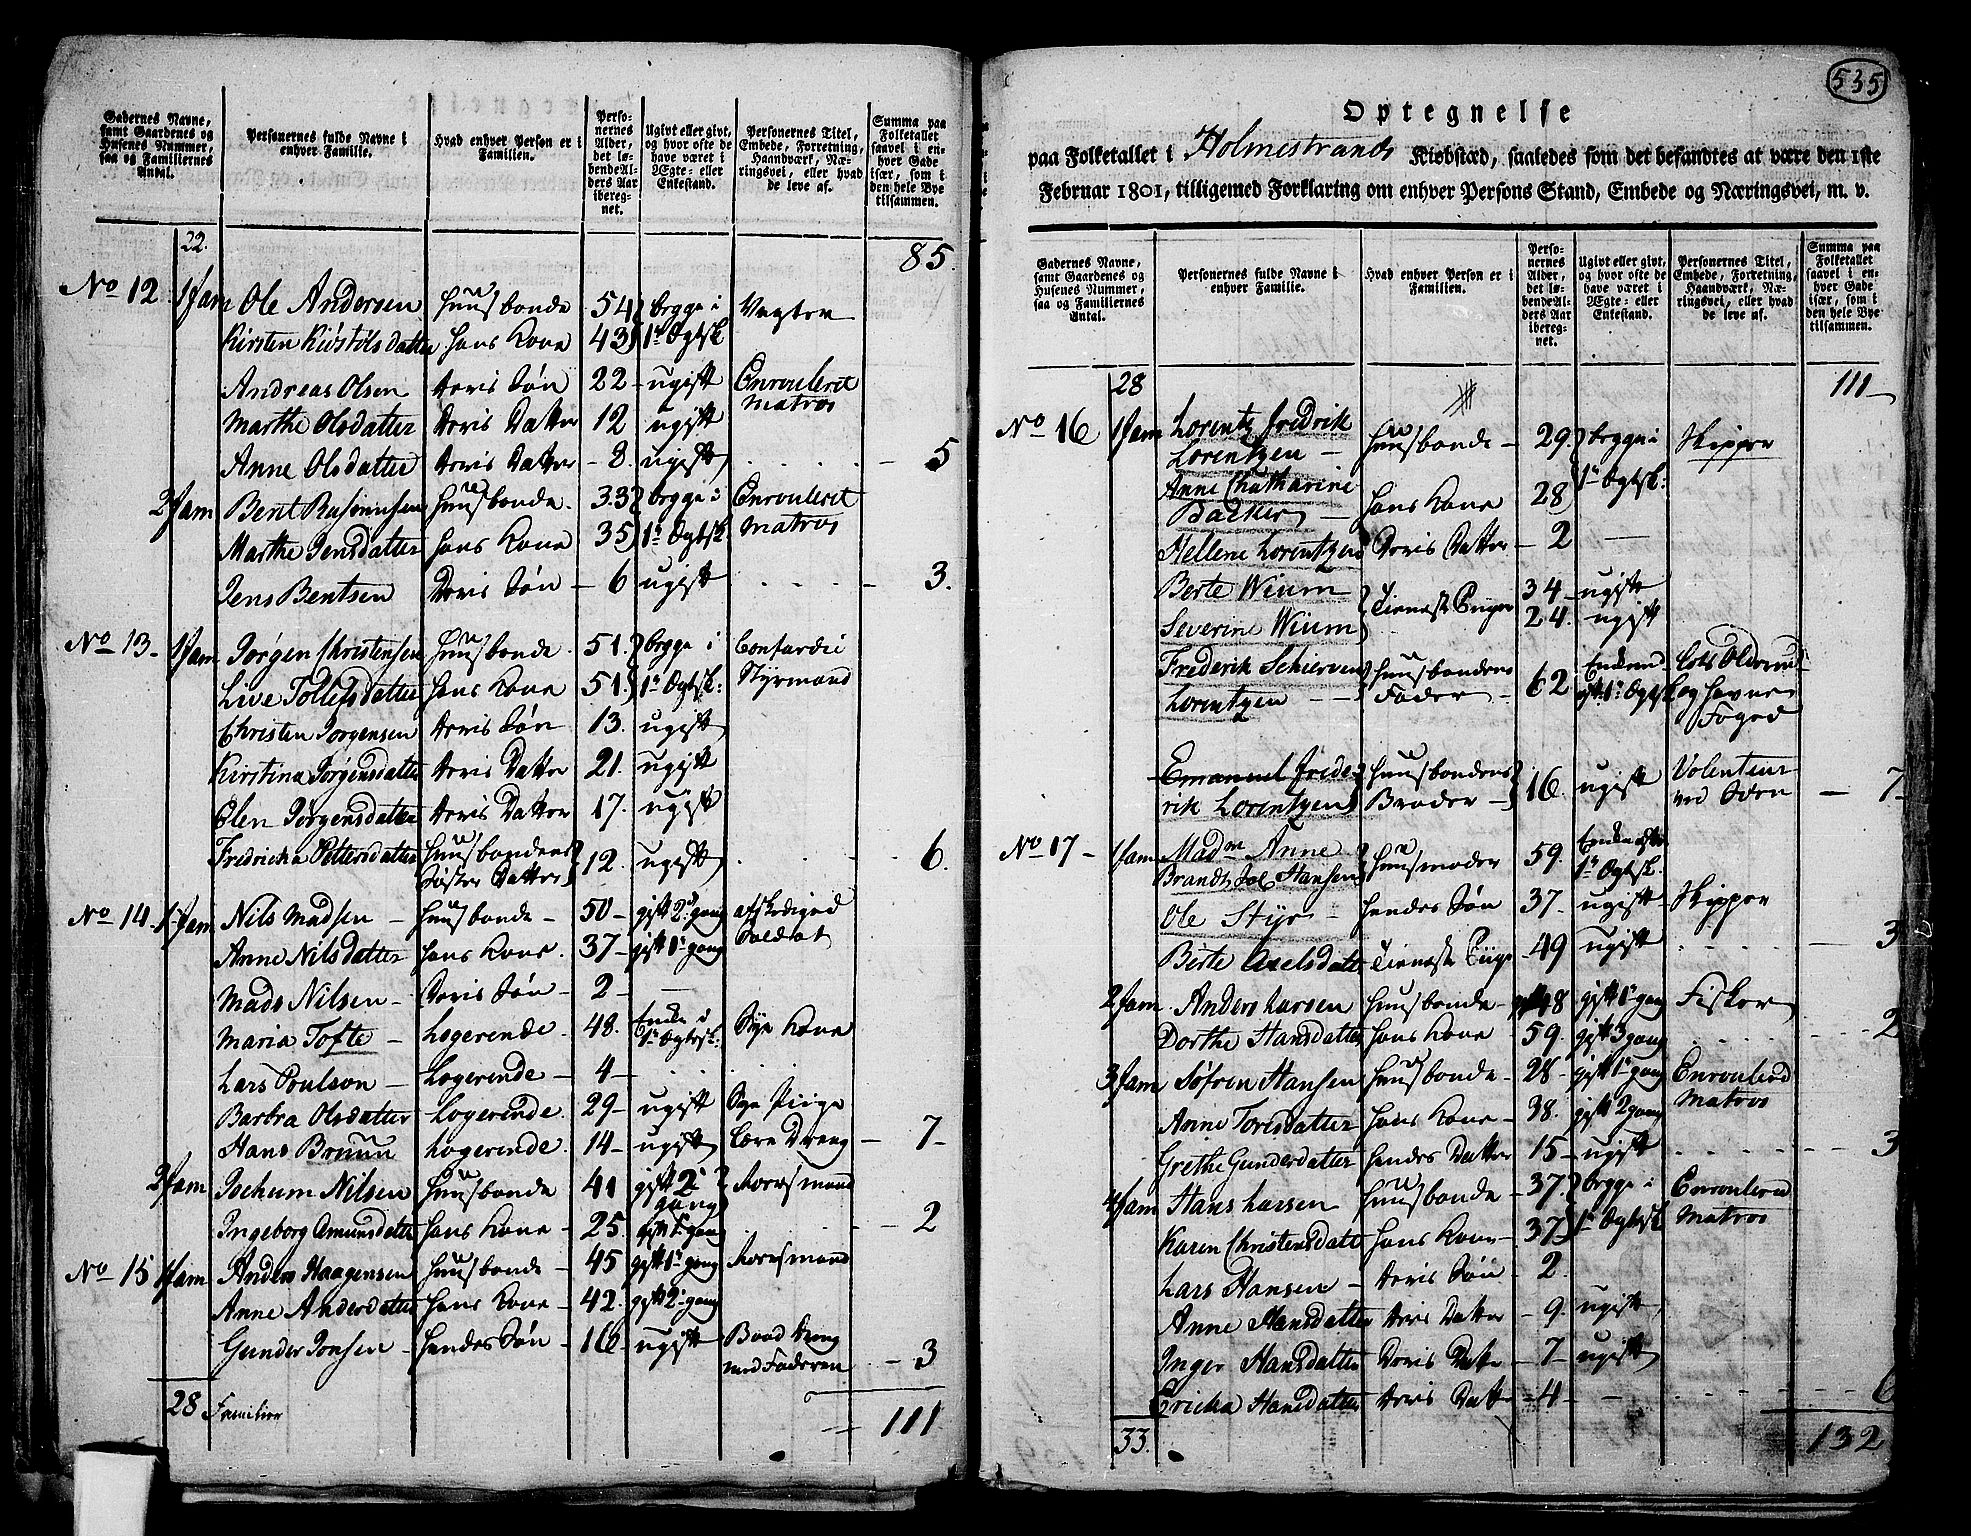 Gadernes Navne, samt Gaardenes og Husenes Nummer, saa og Familiernes Antal.
Personernes fulde Navne i enhver Familie.
Hvad enhver Person er i Familien.
Personernes Alder, det løbende Alders Aar iberegnet.
Ugivt eller givt, og hvor ofte de have været i Ægte- eller Enkestand.
Personernes Titel, Embede, Forretning, Haandværk, Næringsvei, eller hvad de leve af.
Summa paa Folketallet saavel i enhver Gade især, som i den hele Bye tilsammen.
22. 85.
No 12 1 fam Ole Andersen Huusbonde 54 begge i Vegter
Kirsten Kiøstolsdatter hans Kone 43 1te Ægtesk
Andreas Olsen deris Søn 22 - ugift Enroulerit
Matros
Marthe Olsdatter deris Datter 12 ugift
Anne Olsdatter deris Datter - 8. ugift - 5
2 fam Bent Rasmussen Huusbonde. 33 begge i Enroulerit
Marthe Jensdatter hans Kone 35 1te Ægtesk Matros
Jens Bentsen Deris Søn - 6 ugift - 3.
No 13 - 1 fam Jørgen Christensen Huusbonde 51. begge i
Styrmand
Live Tollefsdatter hans Kone 51. 1te Ægtesk:
Christen Jørgensen deris Søn 13. ugift
Kirstina Jørgensdatter deris Datter 21. ugift
Elen Jørgensdatter deris Datter 17. ugift
Fredricka Pettersdatter Huusbondens
Søster Datter 12. ugift 6.
No 14. 1 fam Nils Madsen - Huusbonde - 50 - gift 2den gang afskediged
Anne Nilsdatter hans Kone. 37 - gift 1te gang Soldat
Mads Nilsen - Deris Søn - 2 -
Maria Tofte - Logerende. 48. Enke i
1te Ægtesk: Sye Kone
Lars Poulson - Logerende - 4 -
Barbra Olsdatter Logerende. 29 - ugift Sye Piige
Hans Bruun Logerende. 14 - ugift Lære Dreng - 7 -
2 fam Jochum Nilsen Huusbonde 41 gift 2
gang Kornsmand
Ingeborg Amundsdatter hans Kone - 25. gift 1te gang - 2
No 15 1 fam Anders Haagensen Huusbonde - 45 gift 1te gang
Anne Andersdatter hans Kone - 42. gift 2. gang
Gunder Jonsen - hendes Søn - 16 - ugift Baad Dreng
med Faderen - 3
28 Familier
111
535
Optegnelse
paa Folketallet i Holmestrands Kiøbstæd, saaledes som det befandtes at være den 1ste
Februar 1801, tilligemed Forklaring om enhver Persons Stand, Embede og Næringsvei, m. v.
Gadernes Navne, samt Gaardenes og Husenes Nummer, saa og Familiernes Antal.
Personernes fulde Navne i enhver Familie.
Hvad enhver Person er i Familien.
Personernes Alder, det løbende Alders Aar iberegnet.
Ugivt eller givt, og hvor ofte de have været i Ægte- eller Enkestand.
Personernes Titel, Embede, Forretning, Haandværk, Næringsvei, eller hvad de leve af.
Summa paa Folketallet saavel i enhver Gade især, som i den hele Bye tilsammen.
28 111
No 16 1 fam Lorentz Fredrik
Lorentzen - Huusbonde - 29. begge i Skipper
Anne Chatharine
Backer - hans Kone 28 1te Ægtesk:
Hellene Lorentzen Deris Datter - 2 -
Berte Wium 34 - ugift
Severine Wium Tieneste Piiger 24. ugift
Frederik Schierven
Lorentzen - Huusbondens
Fader - 62 Enkemand
gift 1te Ægtesk Lots Oldermand
og Havne
Foged
Emanuel Frede-
rik Lorentzen Huusbondens
Broder - 16. ugift Volenteur
ved Søen - 7 -
No 17 - 1 fam Madm Anne
Brandt, Sal Hansen Huusmoder 59. 1te Ægtesk.
Ole Styr - hendes Søn 37. ugift - Skipper
Berte Axelsdatter Tieneste Piige 49 ugift 3
2 fam Anders Larsen Huusbonde - 48 gift 1te gang Fisker
Dorthe Hansdatter hans Kone - 59. gift 3 gang 2
3 fam Søfren Hansen Huusbonde - 28 - gift 1te gang Enroulerd
Matros
Anne Torisdatter hans Kone - 38. gift 2 gang
Grethe Gundersdatter hendes Datter 15 - ugift 3
4 fam Hans Larsen Huusbonde - 37. begge i Enroulerd
Matros
Karen Christensdatt hans Kone - 37 1te Ægtesk
Lars Hansen - deris Søn - 2.
Anne Hansdatter deris Datter - 9. ugift,
Inger Hansdatter Deris Datte - 7 - ugift
Ericka Hansdatter deris Datter - 4 - 6
33. 132